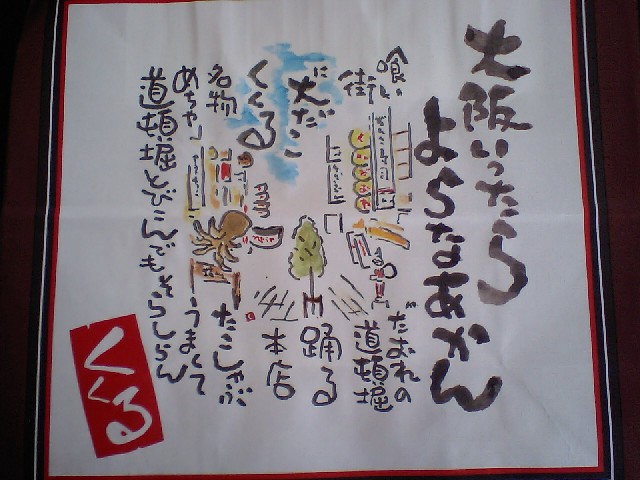 大阪いったら
よらなあかん
喰い だおれの
街 道頓堀
に大だこ 踊る
くくる 本店
名物 たこしゃぶ
めちゃ うまくて
道頓堀とびこんでもそらしらん
くくる